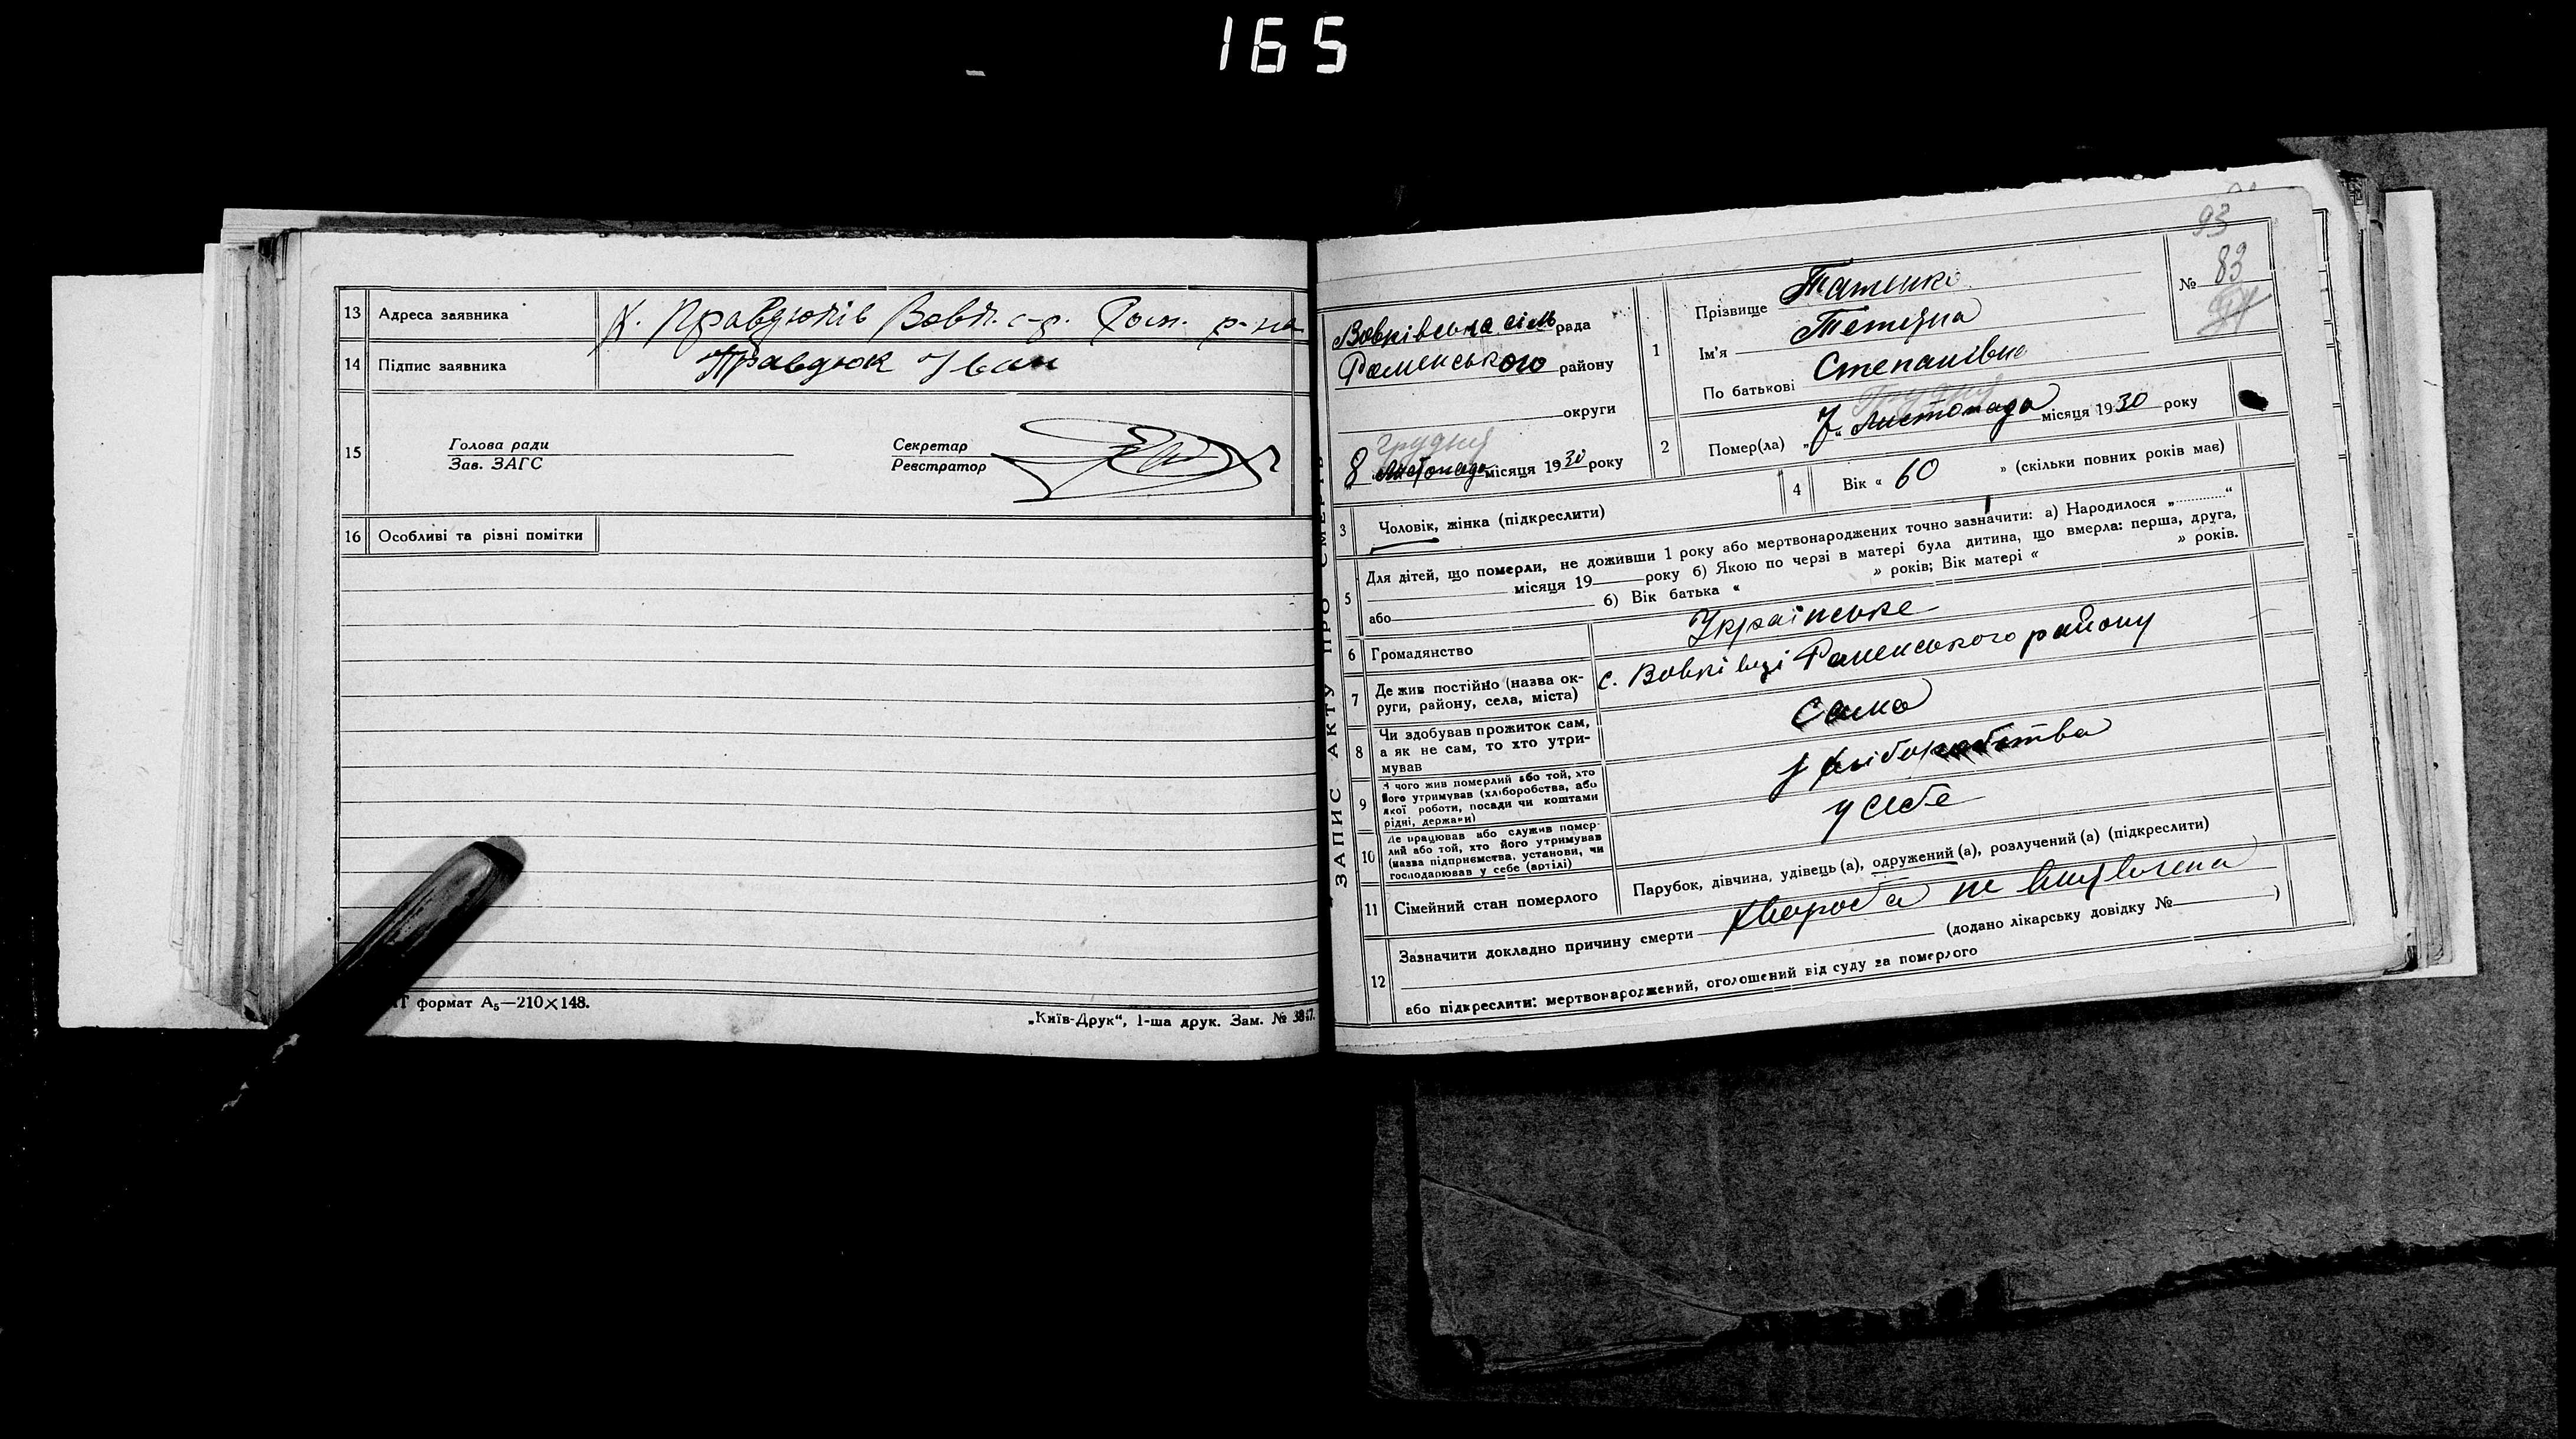 165
13 Адреса заявника х. Правдюків Вовк. с-р. Ром. р-на
14 Підпис заявника Правдюк Іван
15 Голова ради
Зав. ЗАГС
Секретар
Реєстратор
16 Особливі та різні помітки
формат А₅—210×148.
„Київ-Друк“, 1-ша друк. Зам. № 3847.
ЗАПИС АКТУ ПРО СМЕРТЬ
93
№ 83
Вовківська сіль рада
Роменського району
округи
грудня
8 листопада місяця 1930 року
1 Прізвище Татенко
Ім'я Тетяна
По батькові Степанівна
Грудня
2 Помер(ла) „7“ листопада місяця 1930 року
3 Чоловік, жінка (підкреслити)
4 Вік « 60 » (скільки повних років має)
5 Для дітей, що померли, не доживши 1 року або мертвонароджених точно зазначити: а) Народилося „............“
місяця 19 року б) Якою по черзі в матері була дитина, що вмерла: перша, друга,
або б) Вік батька « » років; Вік матері « » років.
6 Громадянство Українське
7 Де жив постійно (назва ок-
руги, району, села, міста) с. Вовківці Роменського району
8 Чи здобував прожиток сам,
а як не сам, то хто утри-
мував сама
9 З чого жив померлий або той, хто
його утримував (хліборобства, або
якої роботи, посади чи коштами
рідні, держави) з хліборобства
10 Де працював або служив помер-
лий або той, хто його утримував
(назва підприємства, установи, чи
господарював у себе (артілі) у себе
11 Сімейний стан померлого Парубок, дівчина, удівець (а), одружений (а), розлучений (а) (підкреслити)
12 Зазначити докладно причину смерти хвороба не
(додано лікарську довідку № )
або підкреслити: мертвонароджений, оголошений від суду за померлого